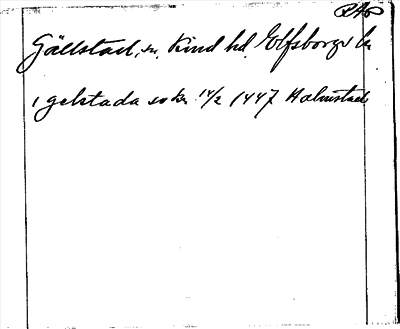 RAp
Gällstad, sn, Kind hd, Elfsborgs ln
i gelstada sokn 14/2 1447 Halmstad